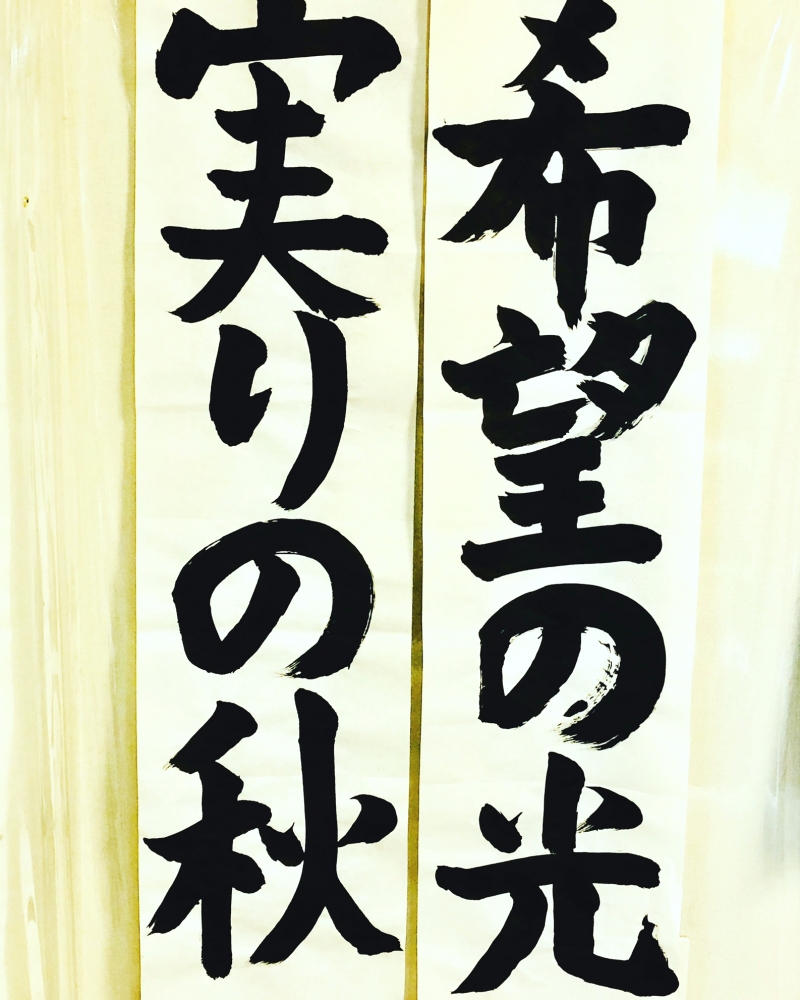 希望の光
実りの秋